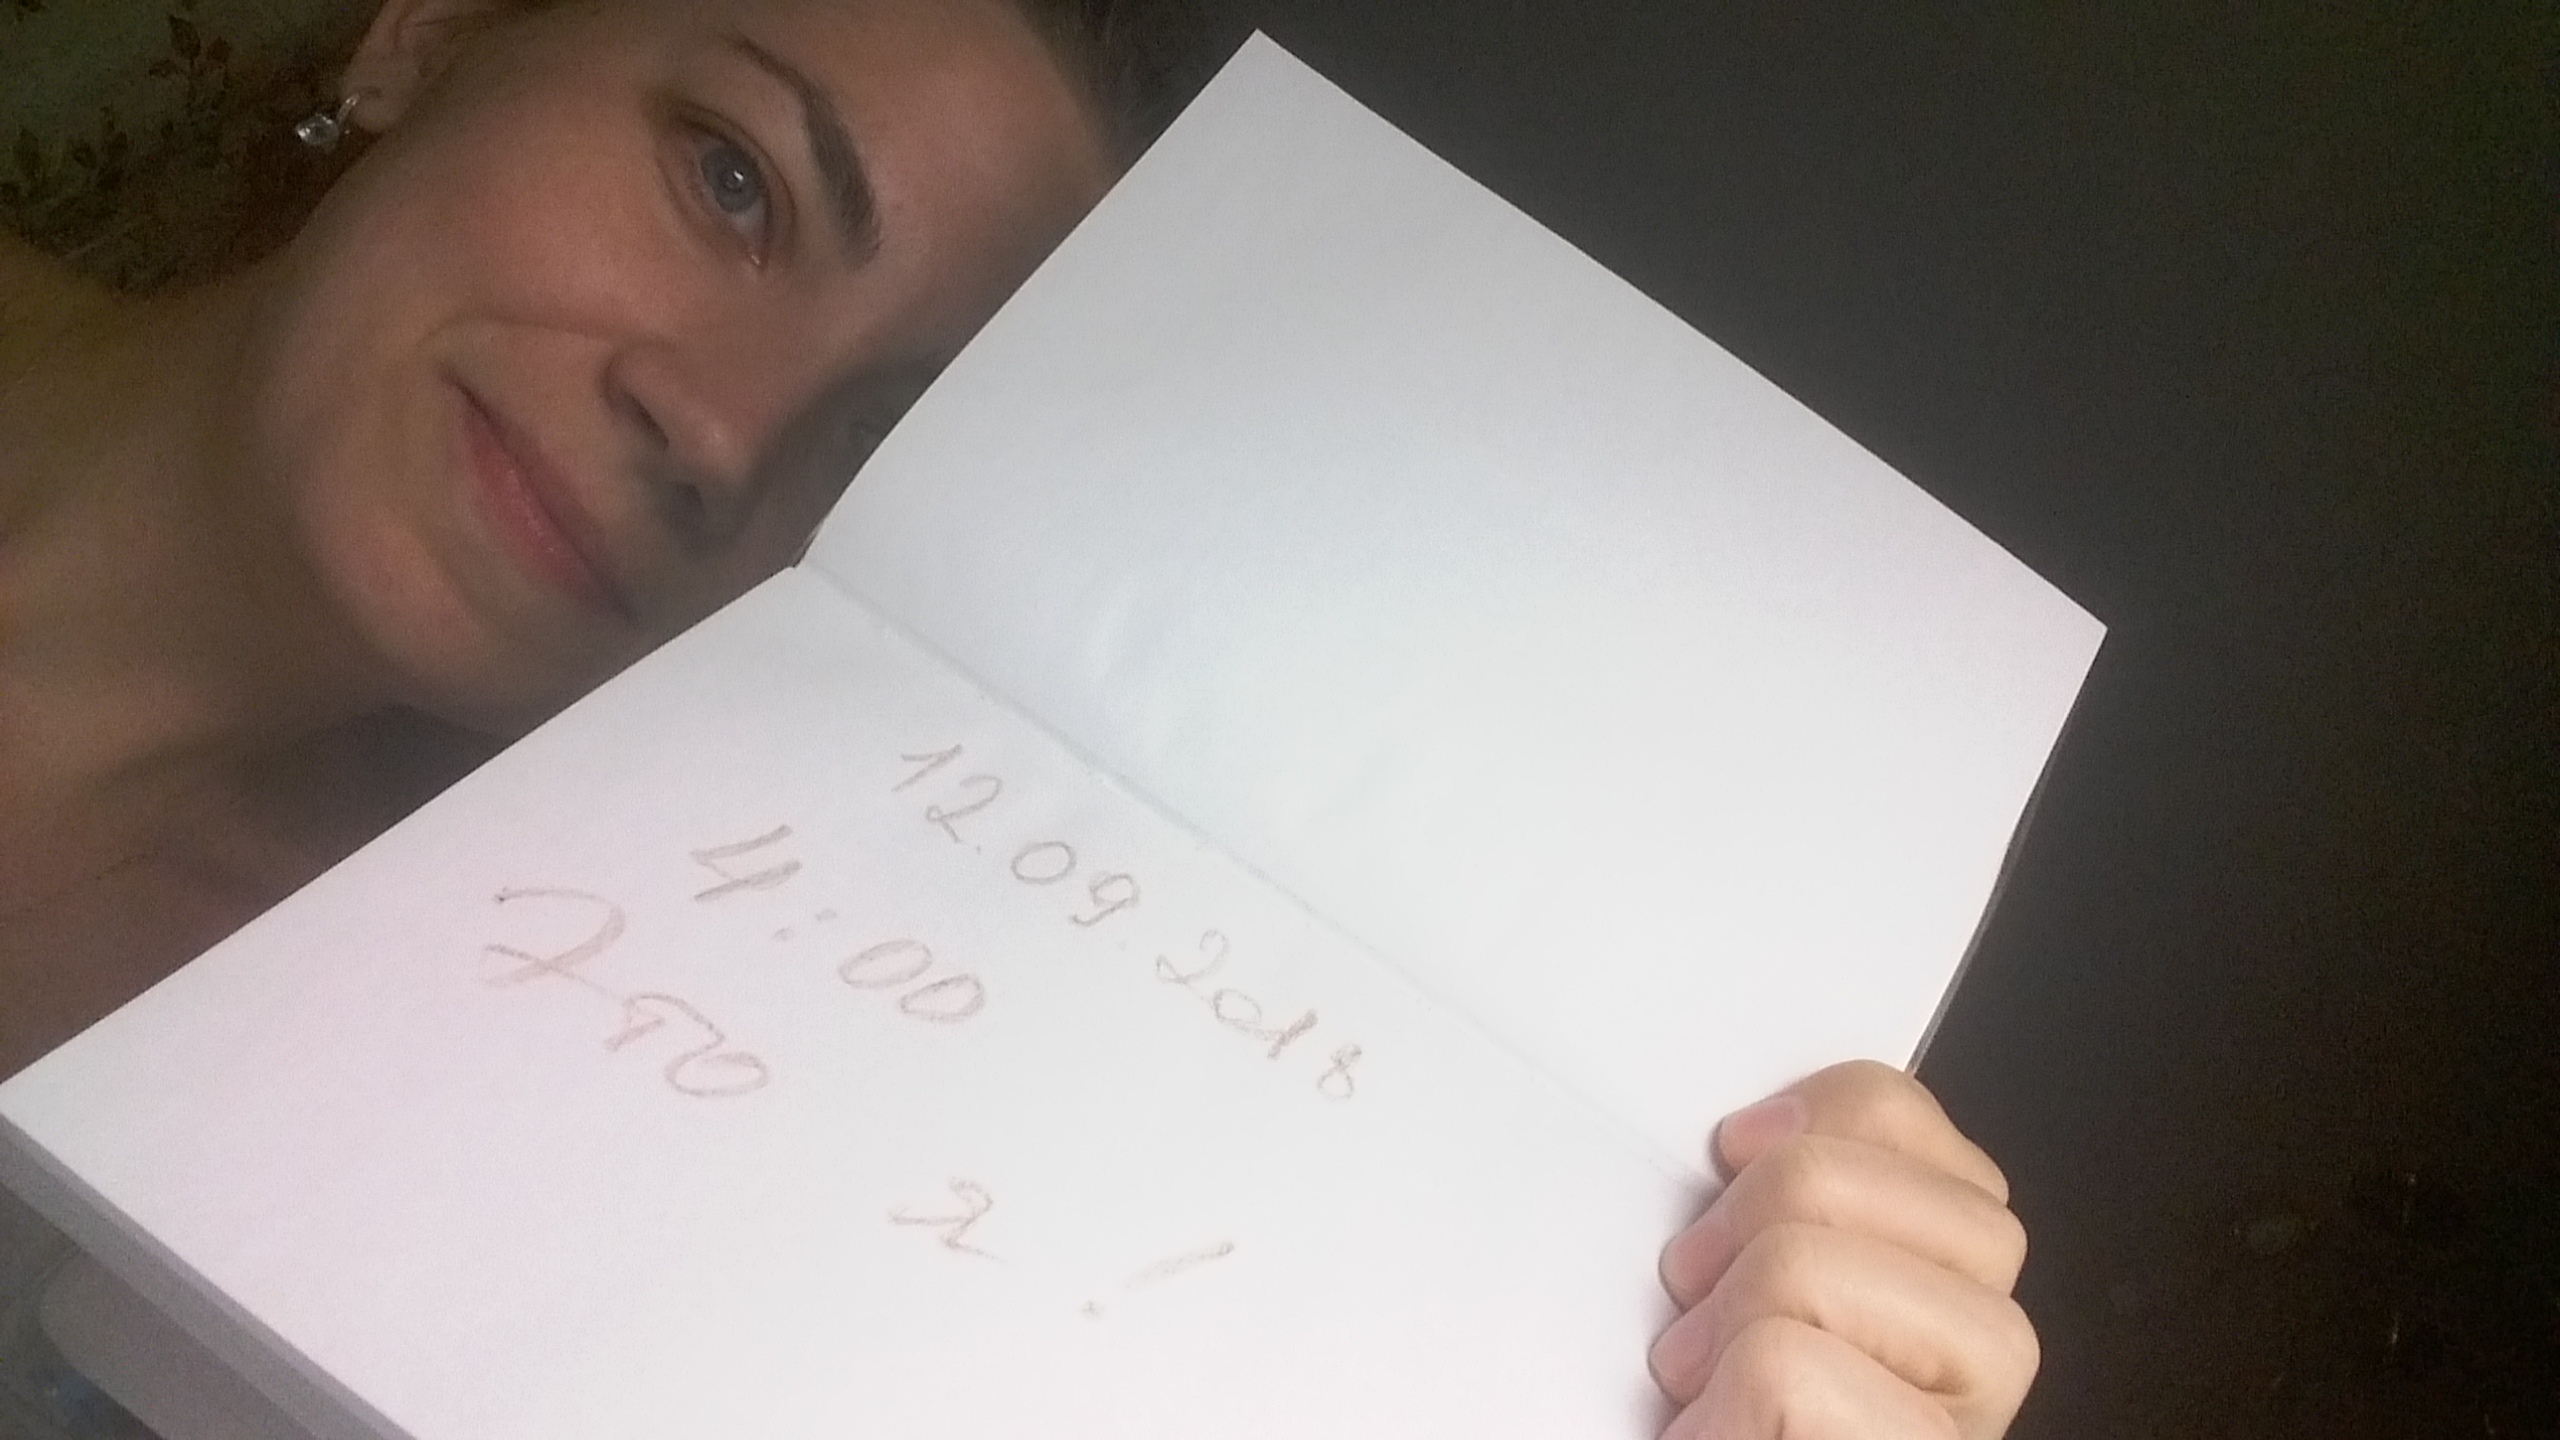 12.09.2018
4:00
Это
я!